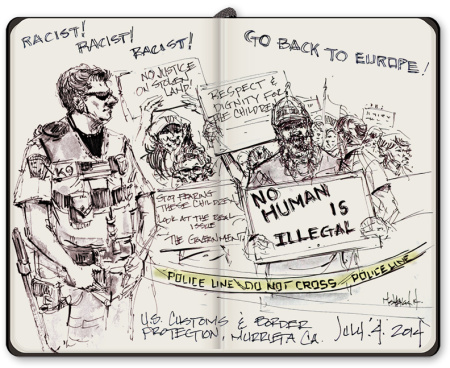 RACIST!
RACIST!
RACIST!
GO BACK TO EUROPE!
NO JUSTICE
ON STOLEN
LAND!
RESPECT &
DIGNITY FOR
THE CHILDREN
K9
STOP FEARING
THESE CHILDREN
LOOK AT THE REAL
ISSUE
THE GOVERNMENT
NO
HUMAN
IS
ILLEGAL
POLICE LINE DO NOT CROSS POLICE LINE
U.S. CUSTOMS & BORDER
PROTECTION, MURRIETA CA.
JULY 4. 2014